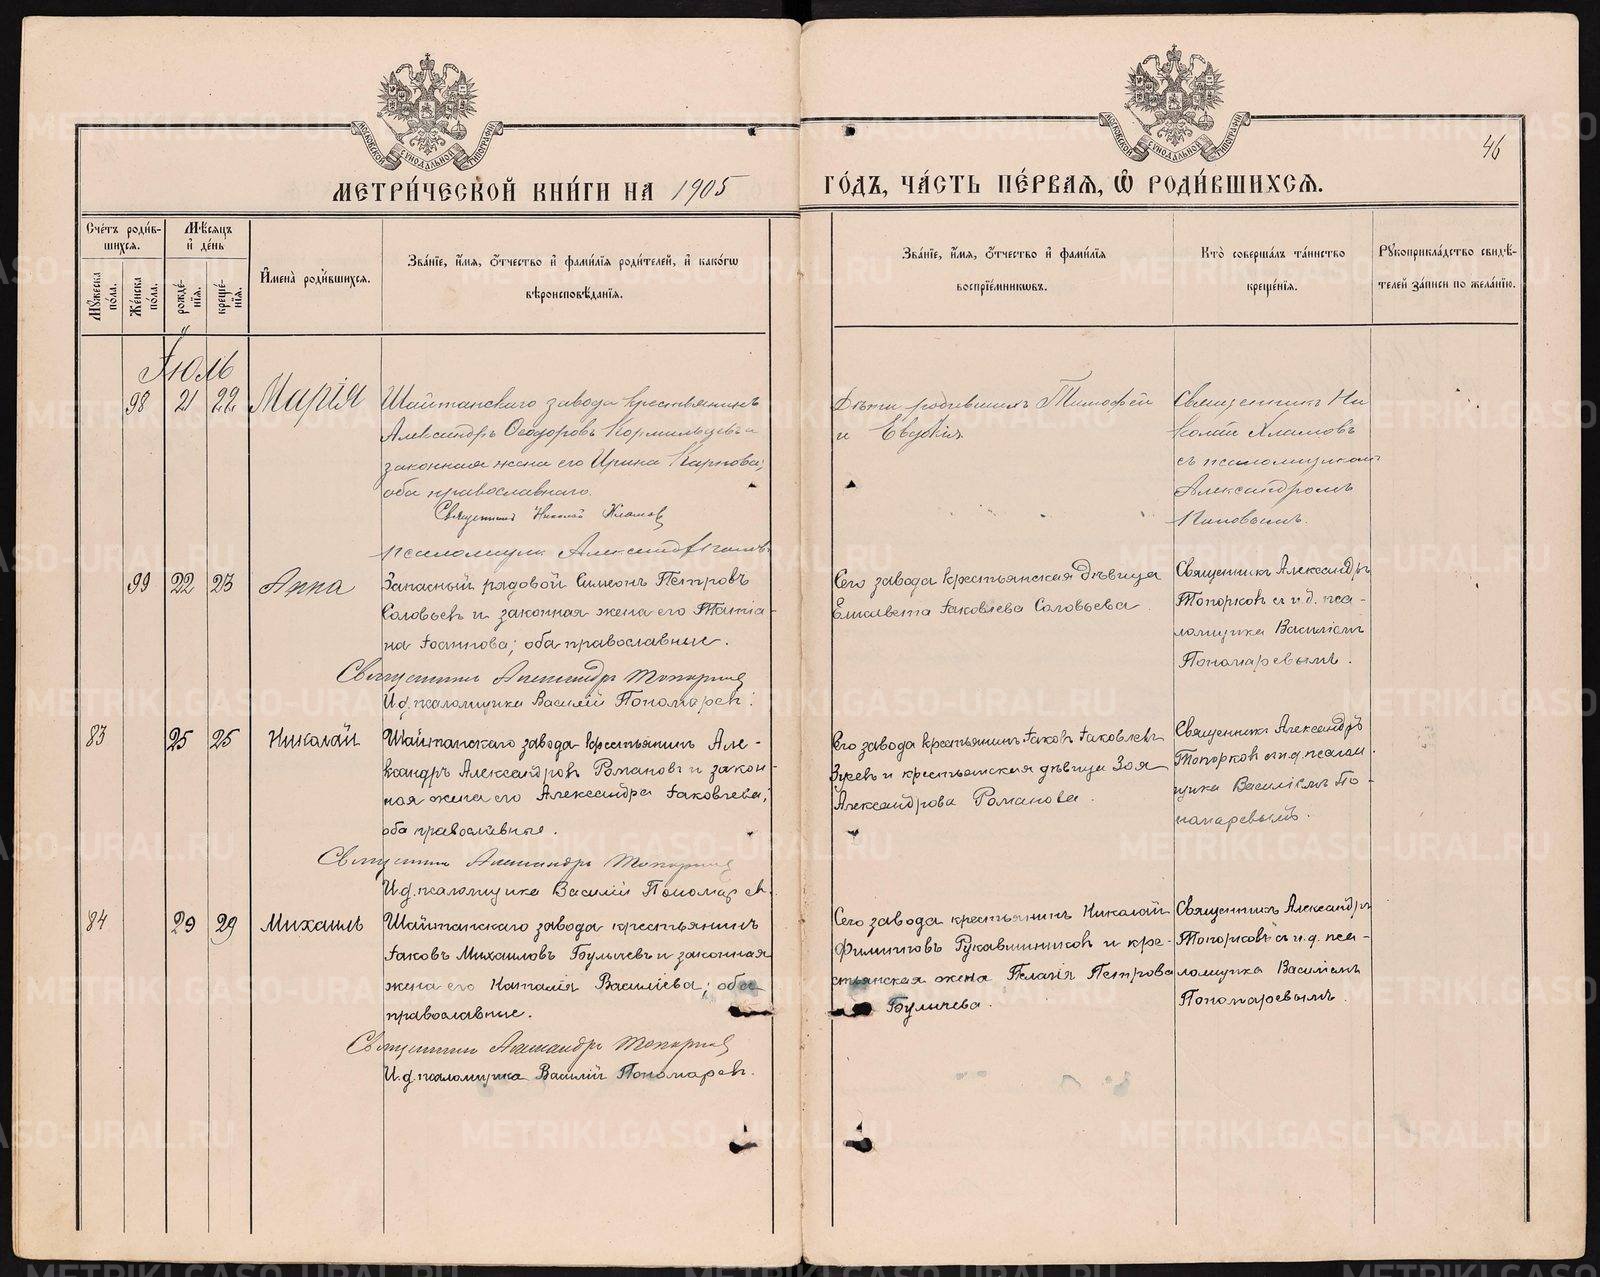 МОСКОВСКОЙ СѴНОДАЛЬНОЙ ТИПОГРАФІИ
МОСКОВСКОЙ СѴНОДАЛЬНОЙ ТИПОГРАФІИ
46
МЕТРИ́ЧЕСКОЙ КНИ́ГИ НА 1905
ГО́ДЪ, ЧА́СТЬ ПЕ́РВАЯ, Ѡ҆ РОДИ́ВШИХСЯ.
Сче́тъ роди́в-
шихся.
Мꙋ́жеска по́ла.
Же́нска по́ла.
Мѣ́сяцъ
и҆ де́нь
рожде́-нїя.
креще́-нїя.
И҆мена̀ роди́вшихся.
Зва́нїе, и҆́мя, ѻ҆́тчество и҆ фами́лїя роди́телей, и҆ како́гѡ
вѣроисповѣ́данїя.
Зва́нїе, и҆́мя, ѻ҆́тчество и҆ фами́лїя
воспрїе́мникѡвъ.
Кто̀ соверша́лъ та́инство
креще́нїя.
Рꙋкоприкла́дство свидѣ́-
телей за́писи по жела́нїю.
Іюль
98 21 22 Марія
Шайтанскаго завода крестьянинъ
Александръ Ѳеодоровъ Кормильцевъ и
законная жена его Ирина Карпова;
оба православнаго.
Священникъ Николай Хламов
псаломщик Александр
Дѣти родившихъ Тимофей
и Евдокія
Священникъ Ни
колай Хламовъ
съ псаломщикомъ
Александромъ
99 22 23 Анна
Запасный рядовой Симеонъ Петровъ
Соловьевъ и законная жена его Татіа-
на Іоаннова; оба православные.
Священникъ Александръ Топорков
И.д. псаломщика Василій Пономарев.
Сего завода крестьянская дѣвица
Елисавета Іаковлева Соловьева
Священникъ Александръ
Топорков съ и.д. пса-
ломщика Василіемъ
Пономаревымъ.
83 25 25 Николай
Шайтанскаго завода крестьянинъ Але-
ксандръ Александров Романовъ и закон-
ная жена его Александра Іаковлева;
оба православные.
Священникъ Александръ Топорков
И.д. псаломщика Василій Пономарев.
Сего завода крестьянинъ Іаковъ Іаковлевъ
Зуевъ и крестьянская дѣвица Зоя
Александрова Романова.
Священникъ Александръ
Топорков съ и.д. псалом-
щика Василіемъ По-
номаревымъ.
84 29 29 Михаилъ
Шайтанскаго завода крестьянинъ
Іаковъ Михаиловъ Булычевъ и законная
жена его Наталія Василіева; оба
православные.
Священникъ Александръ Топорков
И.д. псаломщика Василій Пономарев.
Сего завода крестьянинъ Николай
Филипповъ Рукавишников и кре-
стьянская жена Пелагія Петрова
Булычева.
Священникъ Александръ
Топорковъ съ и.д. пса-
ломщика Василіемъ
Пономаревымъ.
METRIKI.GASO-URAL.RU